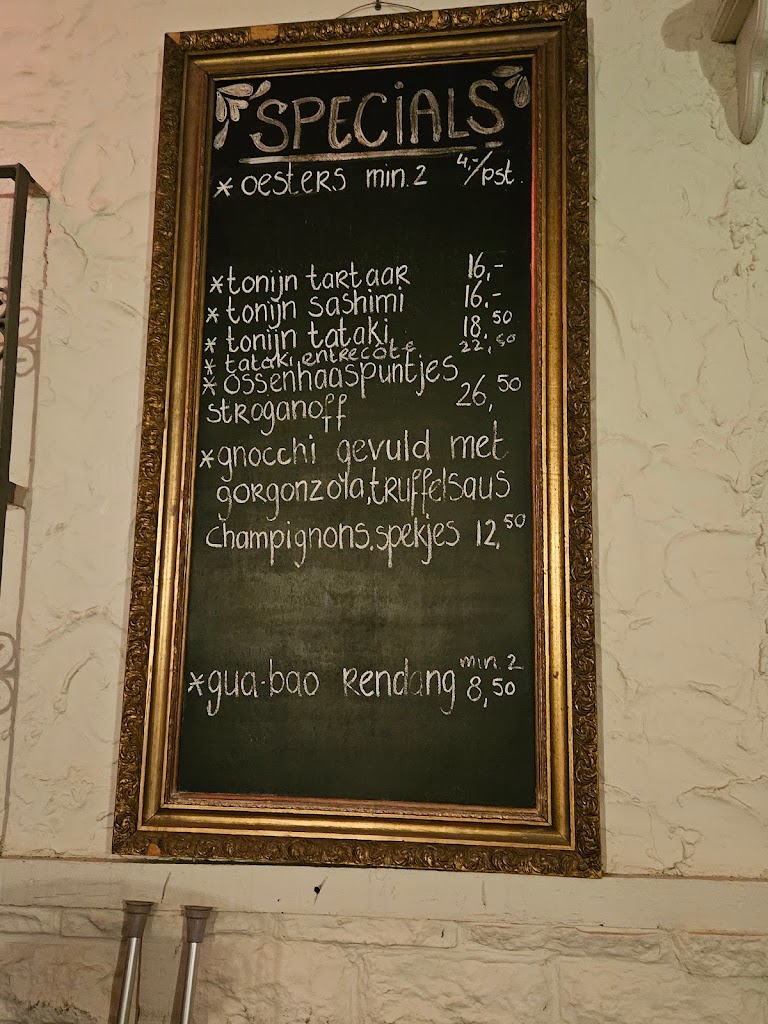 SPECiALS
* OESTERS min. 2 4,-/pst.
* tonijn tartaar 16,-
* tonijn sashimi 16,-
* tonijn tataki 18,50
* tataki entrecôte 22,50
* ossenhaaspuntjes
stroganoff 26,50
* gnocchi gevuld met
gorgonzola, truffelsaus
champignons, spekjes 12,50
* gua-bao Rendang min. 2 8,50